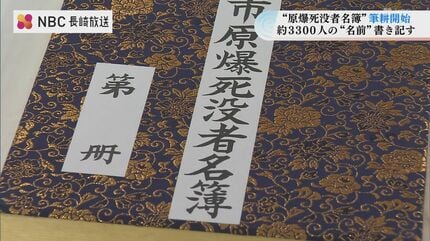 NBC 長崎放送
“原爆死没者名簿”筆耕開始
約3300人の“名前”書き記す
市原爆死没者名簿
第 冊